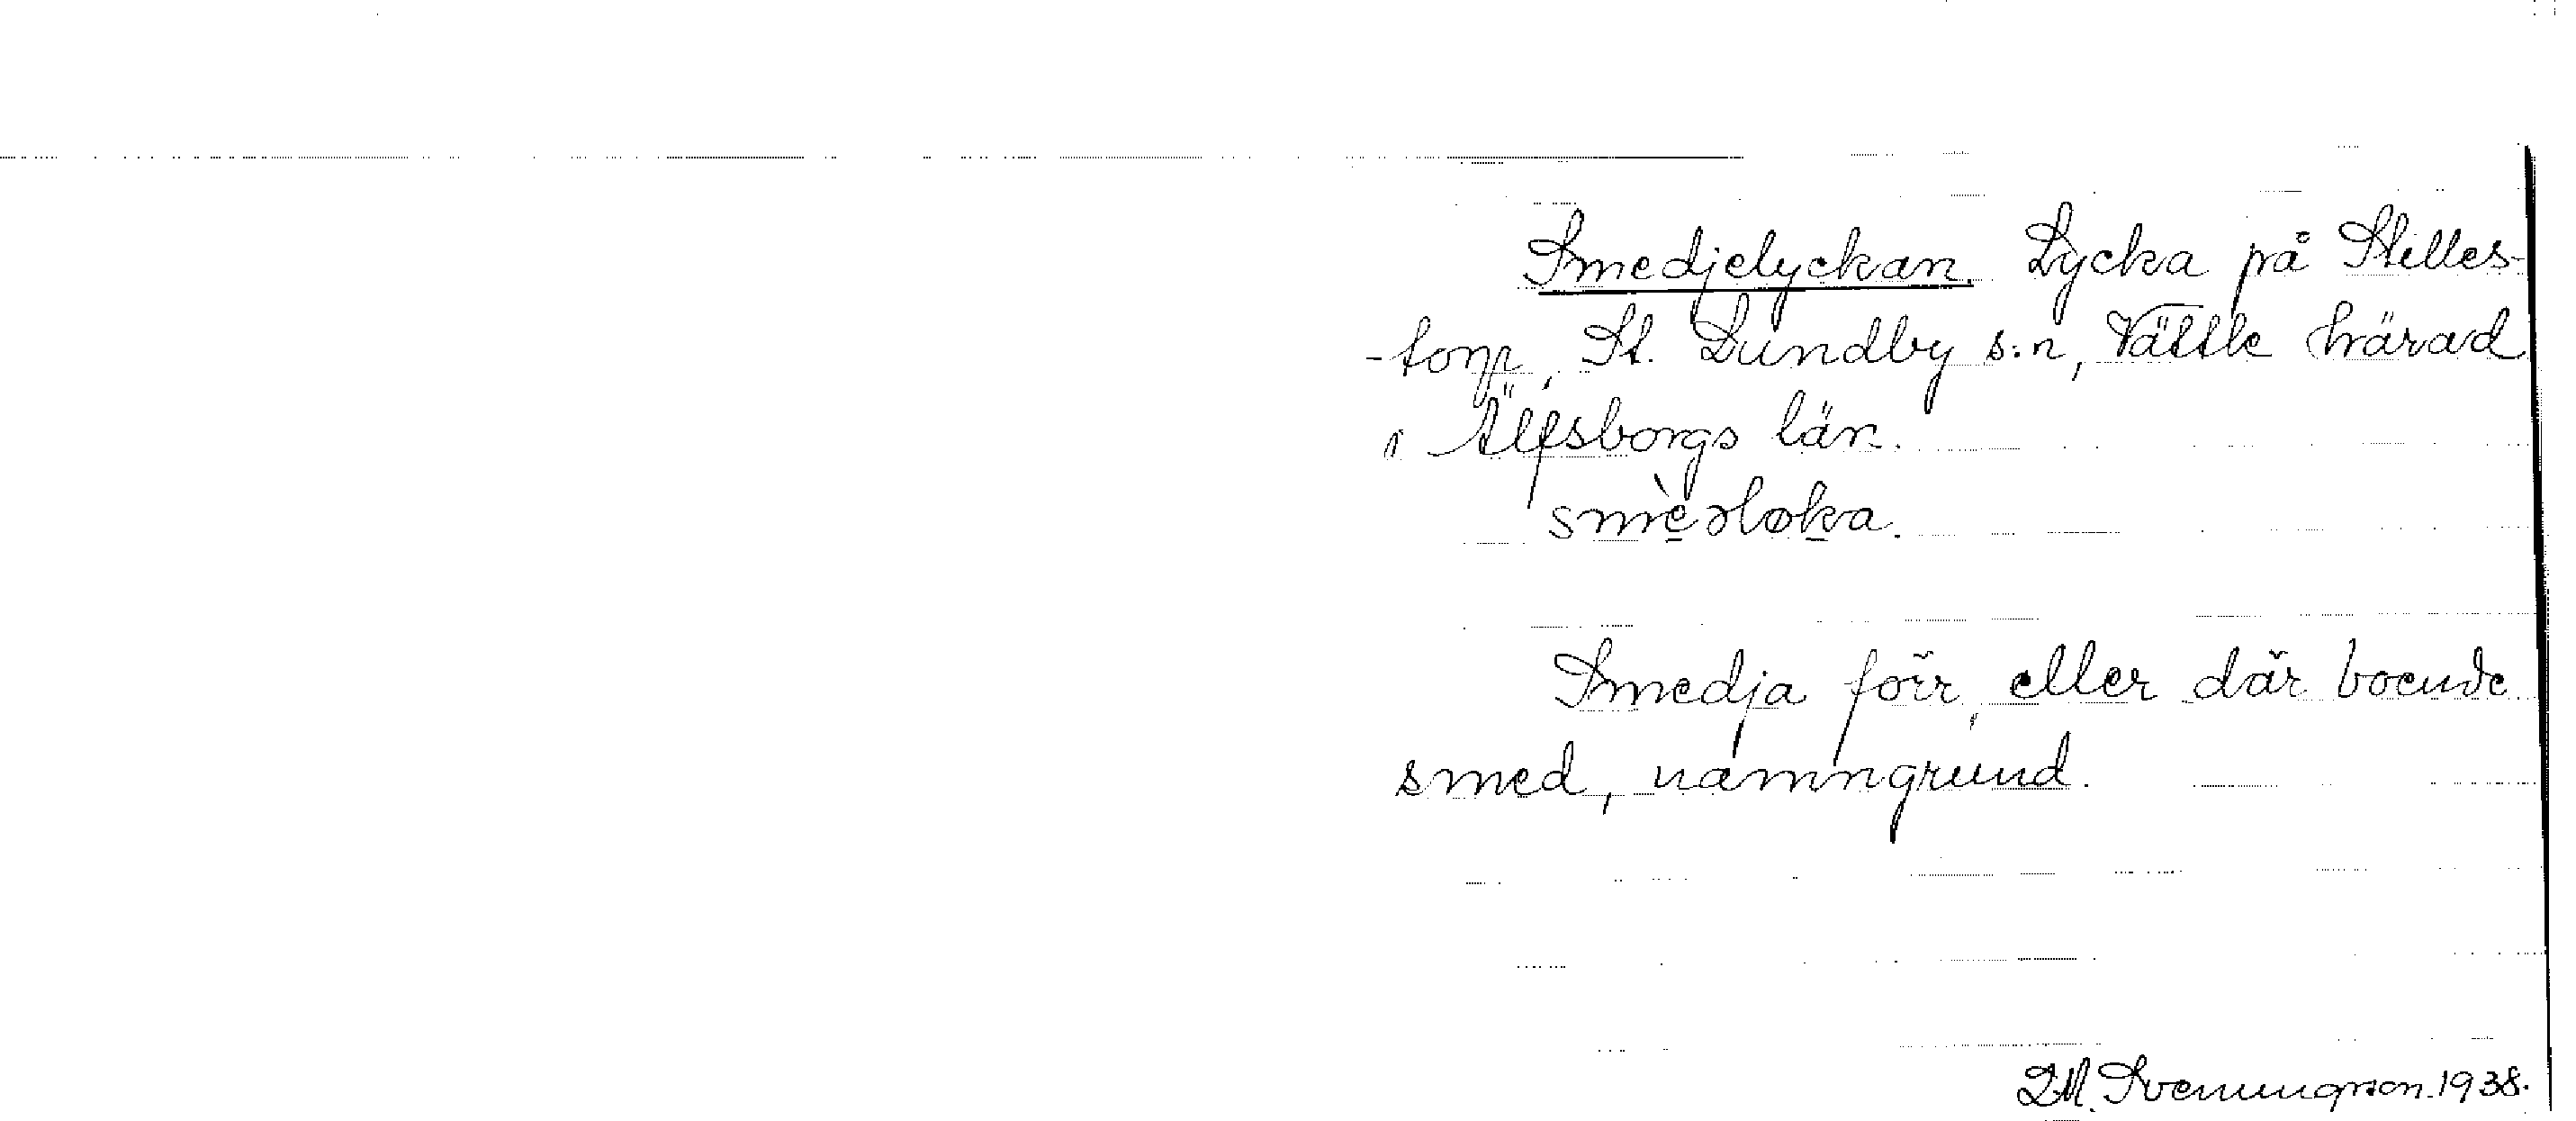 Smedjelyckan. Lycka på Stilles-
-torp, St. Lundby s:n, Vättle härad
i Älfsborgs län.
smèəløka.
Smedja förr, eller där boende
smed, namngrund.
D.M. Svenungsson. 1938.